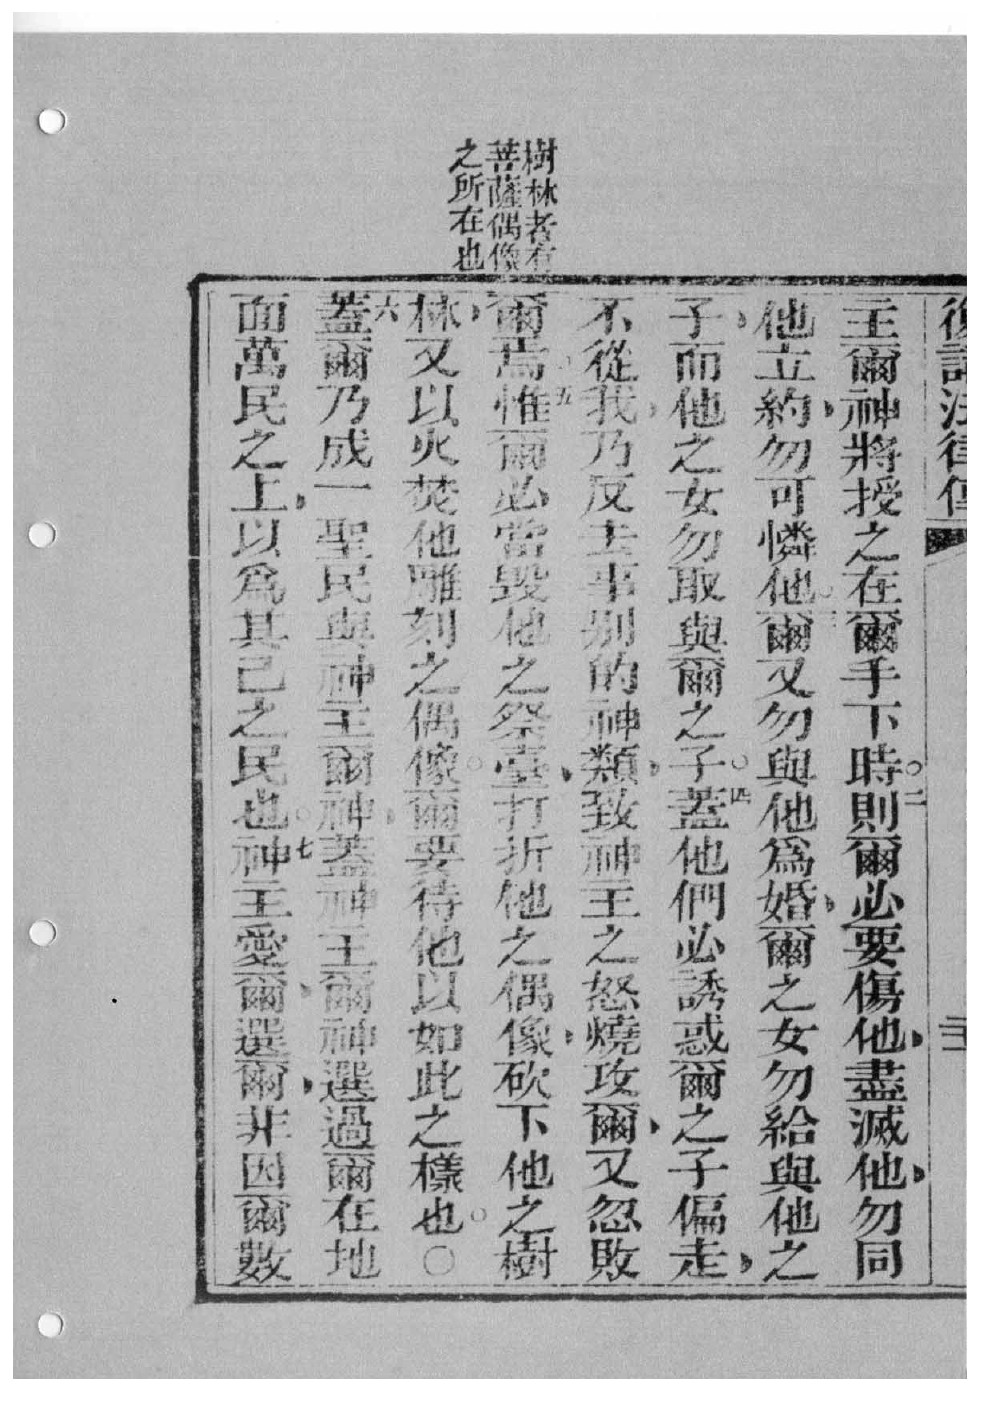 樹林者有
菩薩偶像
之所在也
復講法律傳
主爾神將授之在爾手下時。二則爾必要傷他、盡滅他、勿同
他立約、勿可憐他。三爾又勿與他爲婚、爾之女勿給與他之
子、而他之女勿取與爾之子。四蓋他們必誘惑爾之子偏走、
不從我、乃反去事別的神類、致神主之怒燒攻爾、又忽敗
爾焉。五惟爾必當毁他之祭臺、打折他之偶像、砍下他之樹
林、又以火焚他雕刻之偶像。爾要待他以如此之樣也。○
六蓋爾乃成一聖民與神主爾神、蓋神主爾神選過爾在地
面萬民之上、以爲其己之民也。七神主愛爾、選爾、非因爾數